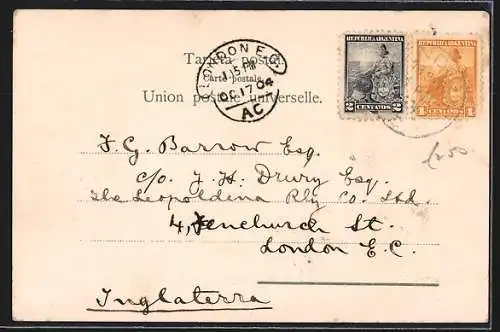 Tarjeta postal
Carte postale
Union postale universelle.
LONDON E.C.
1.15 PM
OC 17 04
AC
REPUBLICA ARGENTINA
2 CENTAVOS 2
REPUBLICA ARGENTINA
1 CENTAVO 1
F. G. Barrow Esq.
c/o J. H. Drury Esq.
The Leopoldina Rly Co. Ltd.
4, Fenchurch St.
London E.C.
Inglaterra